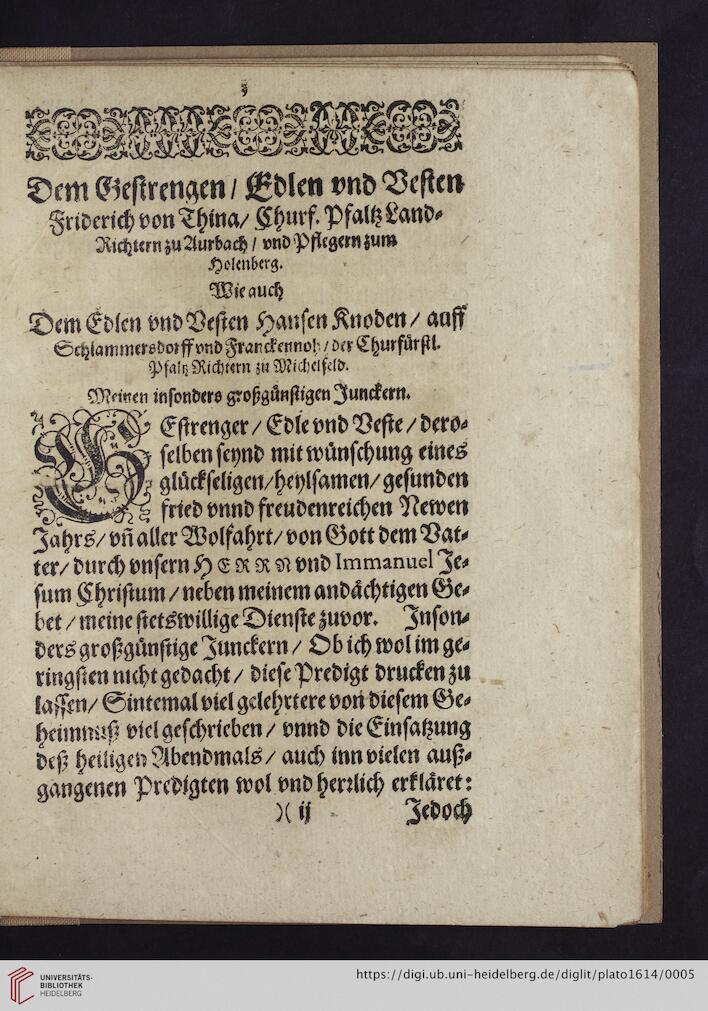 3
Dem Gestrengen / Edlen vnd Vesten
Friderich von Thina / Churf. Pfaltz Land-
Richtern zu Aurbach / vnd Pflegern zum
Holenberg.
Wie auch
Dem Edlen vnd Vesten Hansen Knoden / auff
Schlammersdorff vnd Franckennoh / der Churfürstl.
Pfaltz Richtern zu Michelfeld.
Meinen insonders großgünstigen Junckern.
GEstrenger / Edle vnd Veste / dero-
selben seynd mit wünschung eines
glückseligen / heylsamen / gesunden
fried vnnd freudenreichen Newen
Jahrs / vñ aller Wolfahrt / von Gott dem Vat-
ter / durch vnsern HERRN vnd Immanuel Je-
sum Christum / neben meinem andächtigen Ge-
bet / meine stetswillige Dienste zuvor. Inson-
ders großgünstige Junckern / Ob ich wol im ge-
ringsten nicht gedacht / diese Predigt drucken zu
lassen / Sintemal viel gelehrtere von diesem Ge-
heimnuß viel geschrieben / vnnd die Einsatzung
deß heiligen Abendmals / auch inn vielen auß-
gangenen Predigten wol vnd herrlich erkläret:
)( ij Jedoch
UNIVERSITÄTS-
BIBLIOTHEK
HEIDELBERG
https://digi.ub.uni-heidelberg.de/diglit/plato1614/0005